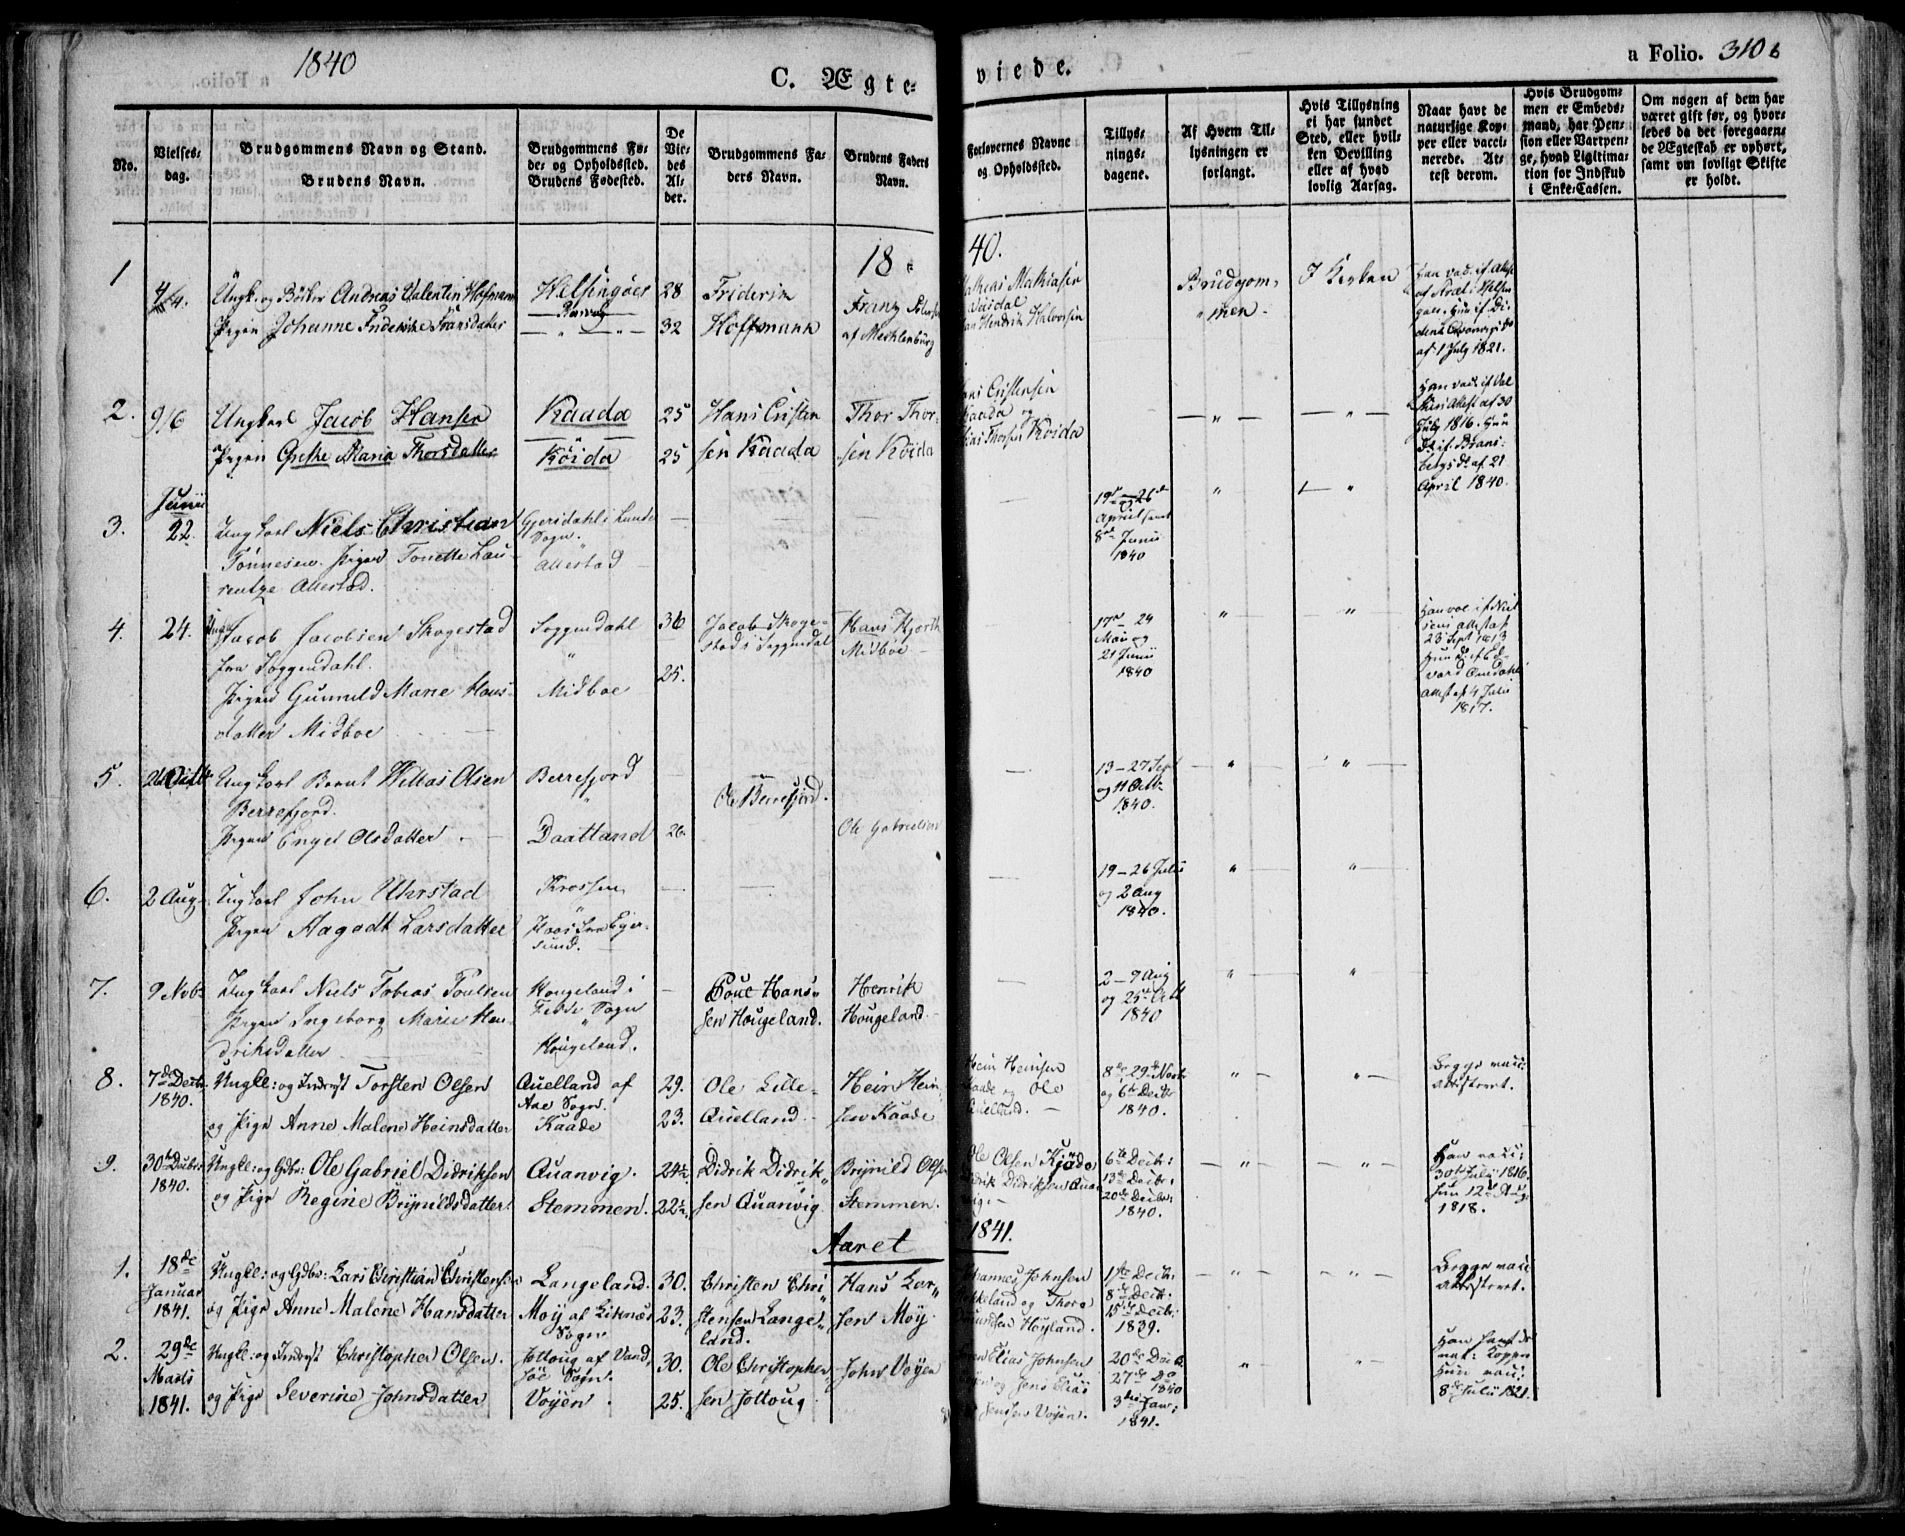 1840
C. Ægte-
viede.
a Folio. 310 b
No.
Vielses-
dag.
Brudgommens Navn og Stand.
Brudens Navn.
Brudgommens Fø-
de- og Opholdssted.
Brudens Fødested.
De
Vie-
des
Al-
der.
Brudgommens Fa-
ders Navn.
Brudens Faders
Navn.
Forlovernes Navne
og Opholdssted.
Tillys-
nings-
dagene.
Af Hvem Til-
lysningen er
forlangt.
Hvis Tillysning
ei har fundet
Sted, eller hvil-
ken Bevilling
eller af hvad
lovlig Aarsag.
Naar havt de
naturlige Kop-
per eller vacci-
nerede. At-
test derom.
Hvis Brudgom-
men er Embeds-
mand, har Pen-
sion eller Vartpen-
ge, hvad Ligitima-
tion for Indskud
i Enke-Cassen.
Om nogen af dem har
været gift før, og hvor-
ledes da det foregaaen-
de Ægteskab er ophørt,
samt om lovligt Skifte
er holdt.
18
40.
1
4/4.
Ungk. og Andreas Valentin Hofmann
Pigen Johanne Friderike Fransdatter
Helsingöer
28
32
Friderik
Hoffmann
Franz
af Mecklenburg
Mathias Mathiasen
Hendrik Halvorsen
Brudgom-
men.
I Kirken
af 1 July 1821.
2.
9/6
Ungkarl Jacob Hansen
Pigen Grethe Maria Thorsdatter
Kaada
Köida
25
25
Hans Cristen
sen Kaada
Thor Thor-
sen Köida
Cristensen
Kaada og
Thorsen Köida
Han vac. if
Attest af 30
July 1816. Hun
af 21
April 1840.
3.
Junii
22.
Ungkarl Niels Christian
Tönnesen. Pigen Tonette Lau-
rentze Allestad.
Gjersdahl i Lunde
Sogn.
Allestad
19de - 26de
April samt
8de Junii
1840
4.
24.
Jacob Jacobsen Skogestad
fra Soggendahl.
Pigen Gunnild Marie Hans-
datter Midboe
Soggendahl
Midboe
36
25.
Jacob Skoge-
stad i Soggendal
Hans Hjorth
Midboe
17de - 24
Mai og
21 Junii
1840
Han vac. if Niel
sens Attest af
23 Sept 1813
Attest af 4 Julii
1817.
5.
Ungkarl Bernt Willas Olsen
Berrefjord.
Pigen Engel Olsdatter
Berrefjord
Daatland
26.
Ole Berrefjord.
Ole Gabrielsen
13 - 27 Sept
og 11 Octb.
1840.
6.
2 Aug
Ungkarl John Uhrstad
Pigen Aagodt Larsdatter
Krossen
Hoos fra Eger-
sund.
19 - 26 Julii
og 2 Aug
1840.
7.
9 Nob.
Ungkarl Niels Tobias Poulsen
Pigen Ingeborg Marie Hen-
driksdatter
Hougeland i
Fede Sogn
Hougeland.
Poul Hans-
sen Hougeland.
Henrik
Hougeland.
2 - 9 Aug
og 25de Octb
1840
8.
7de Decbr.
1840.
Ungkl: og Inderst Torsten Olsen
og Pige Anne Malene Heinsdatter
Quelland af
Aae Sogn.
Kaade
29.
23.
Ole Lille-
Quelland.
Hein Hein-
sen Kaade
Hein Heinsen
Kaade og Ole
Quelland.
8de 29de Novbr
og 6te Decbr
1840.
Begge vacc:
attesteret.
9.
30te Decbr.
1840.
Ungkl: og Gdbr: Ole Gabriel Didriksen
og Pige Regine Brynildsdatter.
Quanvig.
Stemmen.
24½
22½
Didrik Didrik-
sen Quanvig
Brynild Olsen
Stemmen.
Ole Olsen Kjöde
Didrik Didriksen Quan
vig.
6te Decbr:
13de Decbr:
20de Decbr:
1840.
Han vacc:
30te July 1816.
Hun 12te Aug:
1818.
Aaret
1841.
1.
18de
Januar
1841.
Ungkl: og Gdbr: Lars Christian Christensen
og Pige Anne Malene Hansdatter
Langeland.
Moij af Liknæs
Sogn
30.
23.
Christen Chri-
stensen Lange-
land.
Hans Lar-
sen Moij
Johannes Johnsen
og Thore
Höyland.
1ste Decbr:
8de Decbr:
15de Decbr:
1839.
Begge vacc:
attesteret.
2.
29de
Marts
1841.
Ungkl: og Inderst Christopher Olsen.
og Pige Severine Johnsdatter
Jottoug af Vand-
söe Sogn.
Vöyen.
30.
25.
Ole Christopher-
sen Jottoug
John Vöyen
Elias Johnsen
og Jens Elias
Jensen Vöyen.
20de Decb.
27de Do
1840
3die Janr:
1841.
Han havt de
nat: Kopper
Hun vacc:
8de July 1821.